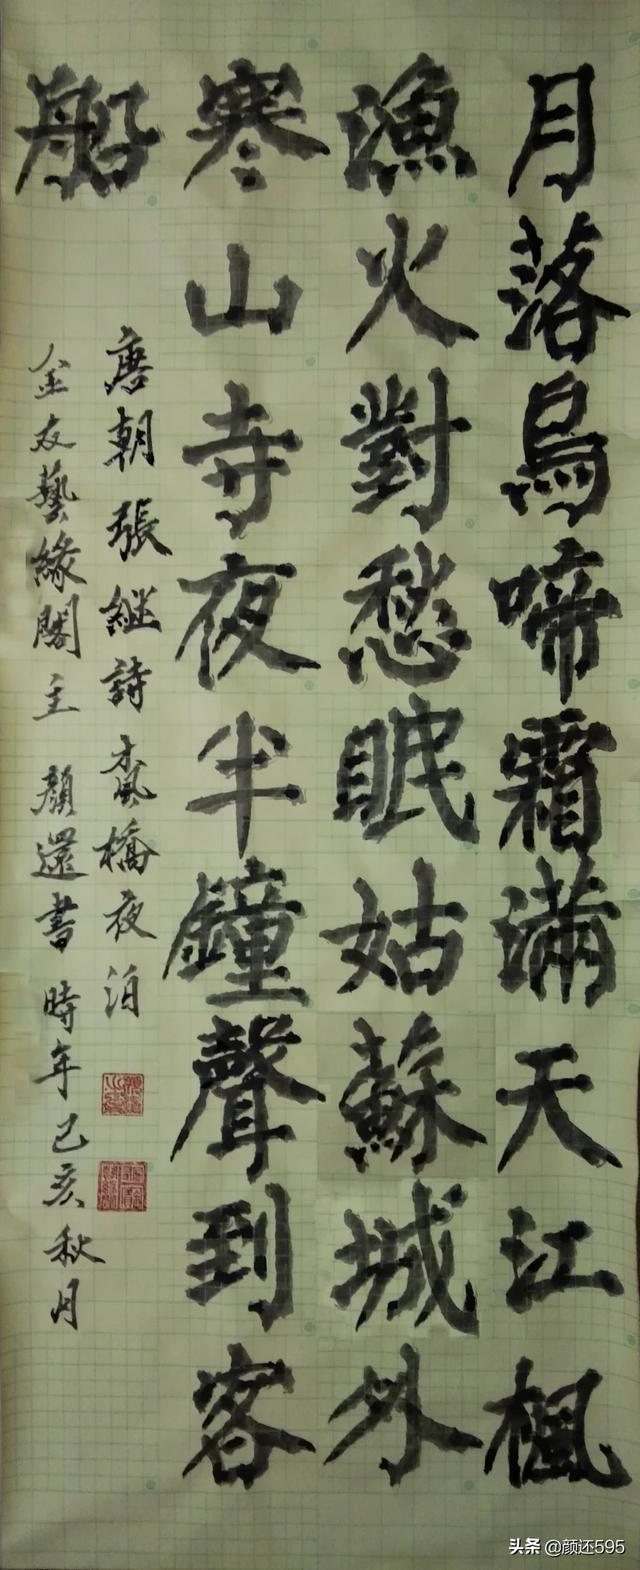 月落烏啼霜滿天江楓
漁火對愁眠姑蘇城外
寒山寺夜半鐘聲到客
船
唐朝張继詩枫橋夜泊
金友藝緣閣主 顏還書 時年己亥秋月
头条 @颜还595